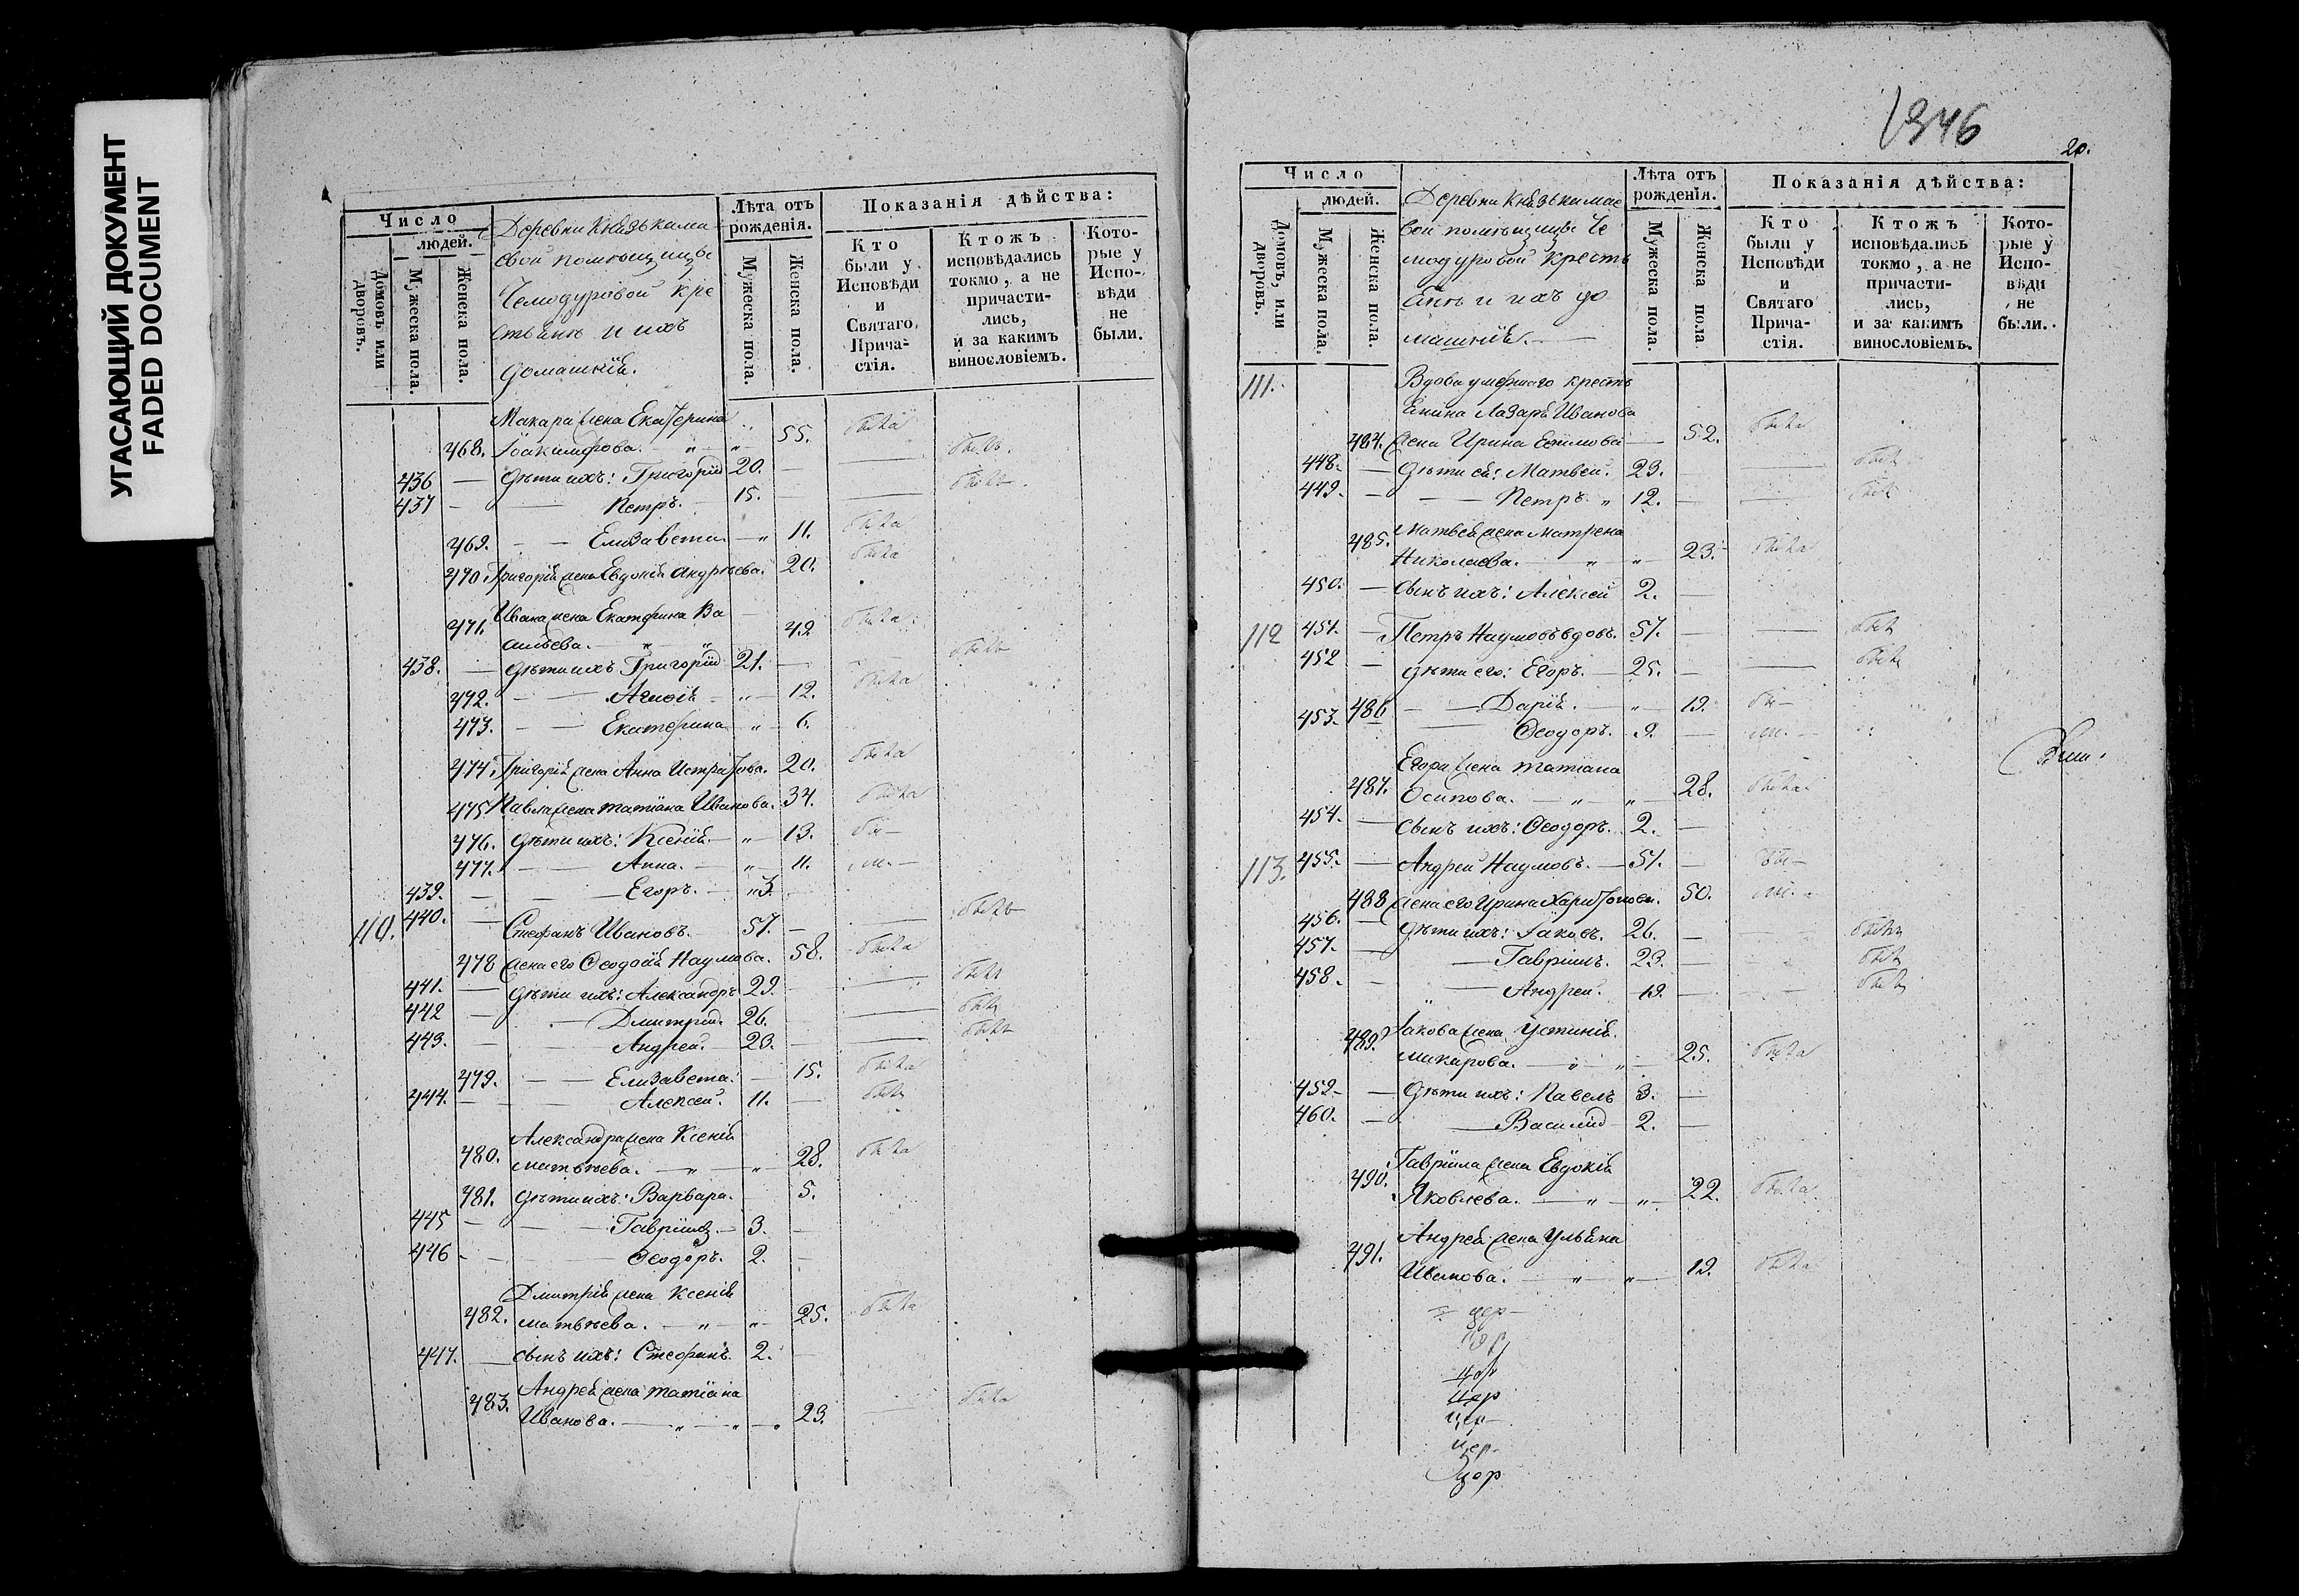 УТАСАЮЩИЙ ДОКУМЕНТ
FADED DOCUMENT
Число
людей.
Домовъ или дворовъ.
Мужеска пола.
Женска пола.
Деревни Князькама
евой помѣщицы
Чемодуровой кре
стьяне и ихъ
домашнія.
Лѣта отъ рожденія.
Мужеска пола.
Женска пола.
Показанія дѣйства:
Кто были у Исповѣди и Святаго Прича-стія.
Ктожъ исповѣдались токмо, а не причасти-лись, и за какимъ винословіемъ.
Кото-рые у Испо-вѣди не были.
Макара жена Екатерина
468. Іоакимфова. 55. была
436 — дѣти ихъ: Григорій 20. — былъ
437 — Петръ. 15. — былъ
469. — Елизавета. 11. была
470. Григорія жена Евдокія Андреева. 20. была
Ивана жена Екатерина Ва
471. сильева. 42 была
438. — дѣти ихъ Григорій 21. — былъ
472. — Агафія 12. была
473. — Екатерина 6.
474. Григорія жена Анна Истратова. 20. была
475 Павла жена Татіана Иванова. 34. была
476. дѣти ихъ: Ксенія. 13. бы—
477. — Анна. 11. ли. —
439. — Егоръ. 3.
110. 440. — Стефанъ Ивановъ. 57. — былъ
478 жена его Ѳеодосія Наумова. 58. была
441. — дѣти ихъ: Александръ 29. — былъ
442 — Дмитрій. 26. — былъ
443. — Андрей. 23. — былъ
479. — Елизавета. 15. была
444. — Алексей. 11. — былъ
Александра жена Ксенія
480. Матвѣева. 28. была
481. дѣти ихъ: Варвара. 5.
445 — Гавріилъ — 3. —
446 — Ѳеодоръ. 2. —
Дмитрія жена Ксенія
482. Матвѣева. 25. была
447. — сынъ ихъ: Стефанъ. 2. —
Андрея жена Татіана
483. Иванова. 23. была
1346
20.
Число
людей.
Домовъ, или дворовъ.
Мужеска пола.
Женска пола.
Деревни Князькамае
вой помѣщицы Че
модуровой кресть
яне и ихъ до
машнія. —
Лѣта отъ рожденія.
Мужеска пола.
Женска пола
Показанія дѣйства:
Кто были у Исповѣди и Святаго Прича-стія.
Ктожъ исповѣдались токмо, а не причасти-лись, и за какимъ винословіемъ.
Кото-рые у Испо-вѣди не были.
111. Вдова умершаго кресть
янина Лазаря Иванова
484. жена Ирина Ефимова — 52. была
448. — дѣти ея: Матвей. 23. — былъ
449. — Петръ. 12. — былъ
Матвея жена Матрена
485. Николаева. 23. была
450. — сынъ ихъ: Алексей 2. —
112 451. — Петръ Наумовъ вдовъ. 57. — былъ
452 — дѣти его: Егоръ. — 25. — былъ
486 — Дарія. 19. бы—
453. — Ѳеодоръ. 9. — ли. —
Егора жена Татіана
487. Осипова. 28. была
454. — сынъ ихъ: Ѳеодоръ. 2. —
113. 455. — Андрей Наумовъ. — 51. — бы—
488 жена его Ирина Харитонова. 50. ли. —
456. — дѣти ихъ: Іаковъ. 26. — былъ
457. — Гавріилъ. 23. — былъ
458. — Андрей. 19. — былъ
Іакова жена Устинія
489. Макарова. 25. была
459. — дѣти ихъ: Павелъ 3. —
460. — Василій 2. —
Гавріила жена Евдокія
490. Яковлева. 22. была
Андрея жена Ульяна
491. Иванова. 19. была